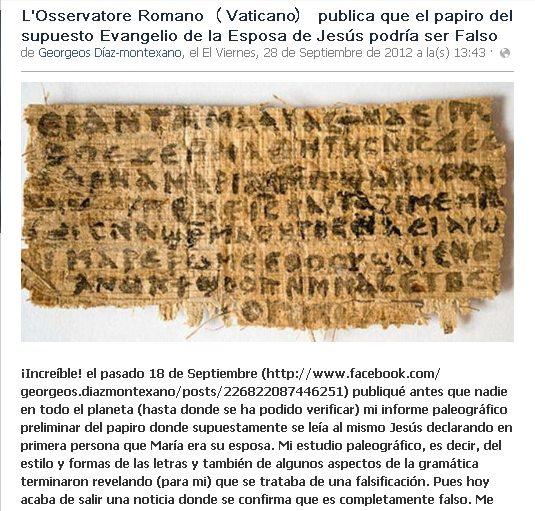 L'Osservatore Romano ( Vaticano) publica que el papiro del
supuesto Evangelio de la Esposa de Jesús podría ser Falso
de Georgeos Díaz-montexano, el El Viernes, 28 de Septiembre de 2012 a la(s) 13:43 ·
ⲉⲓ ⲁⲛ ⲧⲁⲙⲁⲁⲩ ⲁⲥϯ ⲛⲁⲉⲓ ⲡ
ⲡⲉϫⲉ ⲙⲙⲁⲑⲏⲧⲏⲥ ⲛⲓⲥ ϫⲉ ⲥ
ⲙⲁⲣⲓⲁⲙ
ⲡⲉϫⲉ ⲓⲥ ⲛⲁⲩ ⲧⲁϩⲓⲙⲉ ⲙⲛ
ⲙⲁⲑⲏⲧⲏⲥ ⲛⲁⲉⲓ ⲁⲩⲱ
ⲓ ⲙⲁⲣⲉⲣⲱⲙⲉ ⲉⲑⲟⲟⲩ ϣⲁϥⲉ ⲛⲉ
ⲁⲛⲟⲕ ϯϣⲟⲟⲡ ⲛⲙⲙⲁⲥ ⲉⲧⲃⲉ
¡Increíble! el pasado 18 de Septiembre (http://www.facebook.com/
georgeos.diazmontexano/posts/226822087446251) publiqué antes que nadie
en todo el planeta (hasta donde se ha podido verificar) mi informe paleográfico
preliminar del papiro donde supuestamente se leía al mismo Jesús declarando en
primera persona que María era su esposa. Mi estudio paleográfico, es decir, del
estilo y formas de las letras y también de algunos aspectos de la gramática
terminaron revelando (para mi) que se trataba de una falsificación. Pues hoy
acaba de salir una noticia donde se confirma que es completamente falso. Me